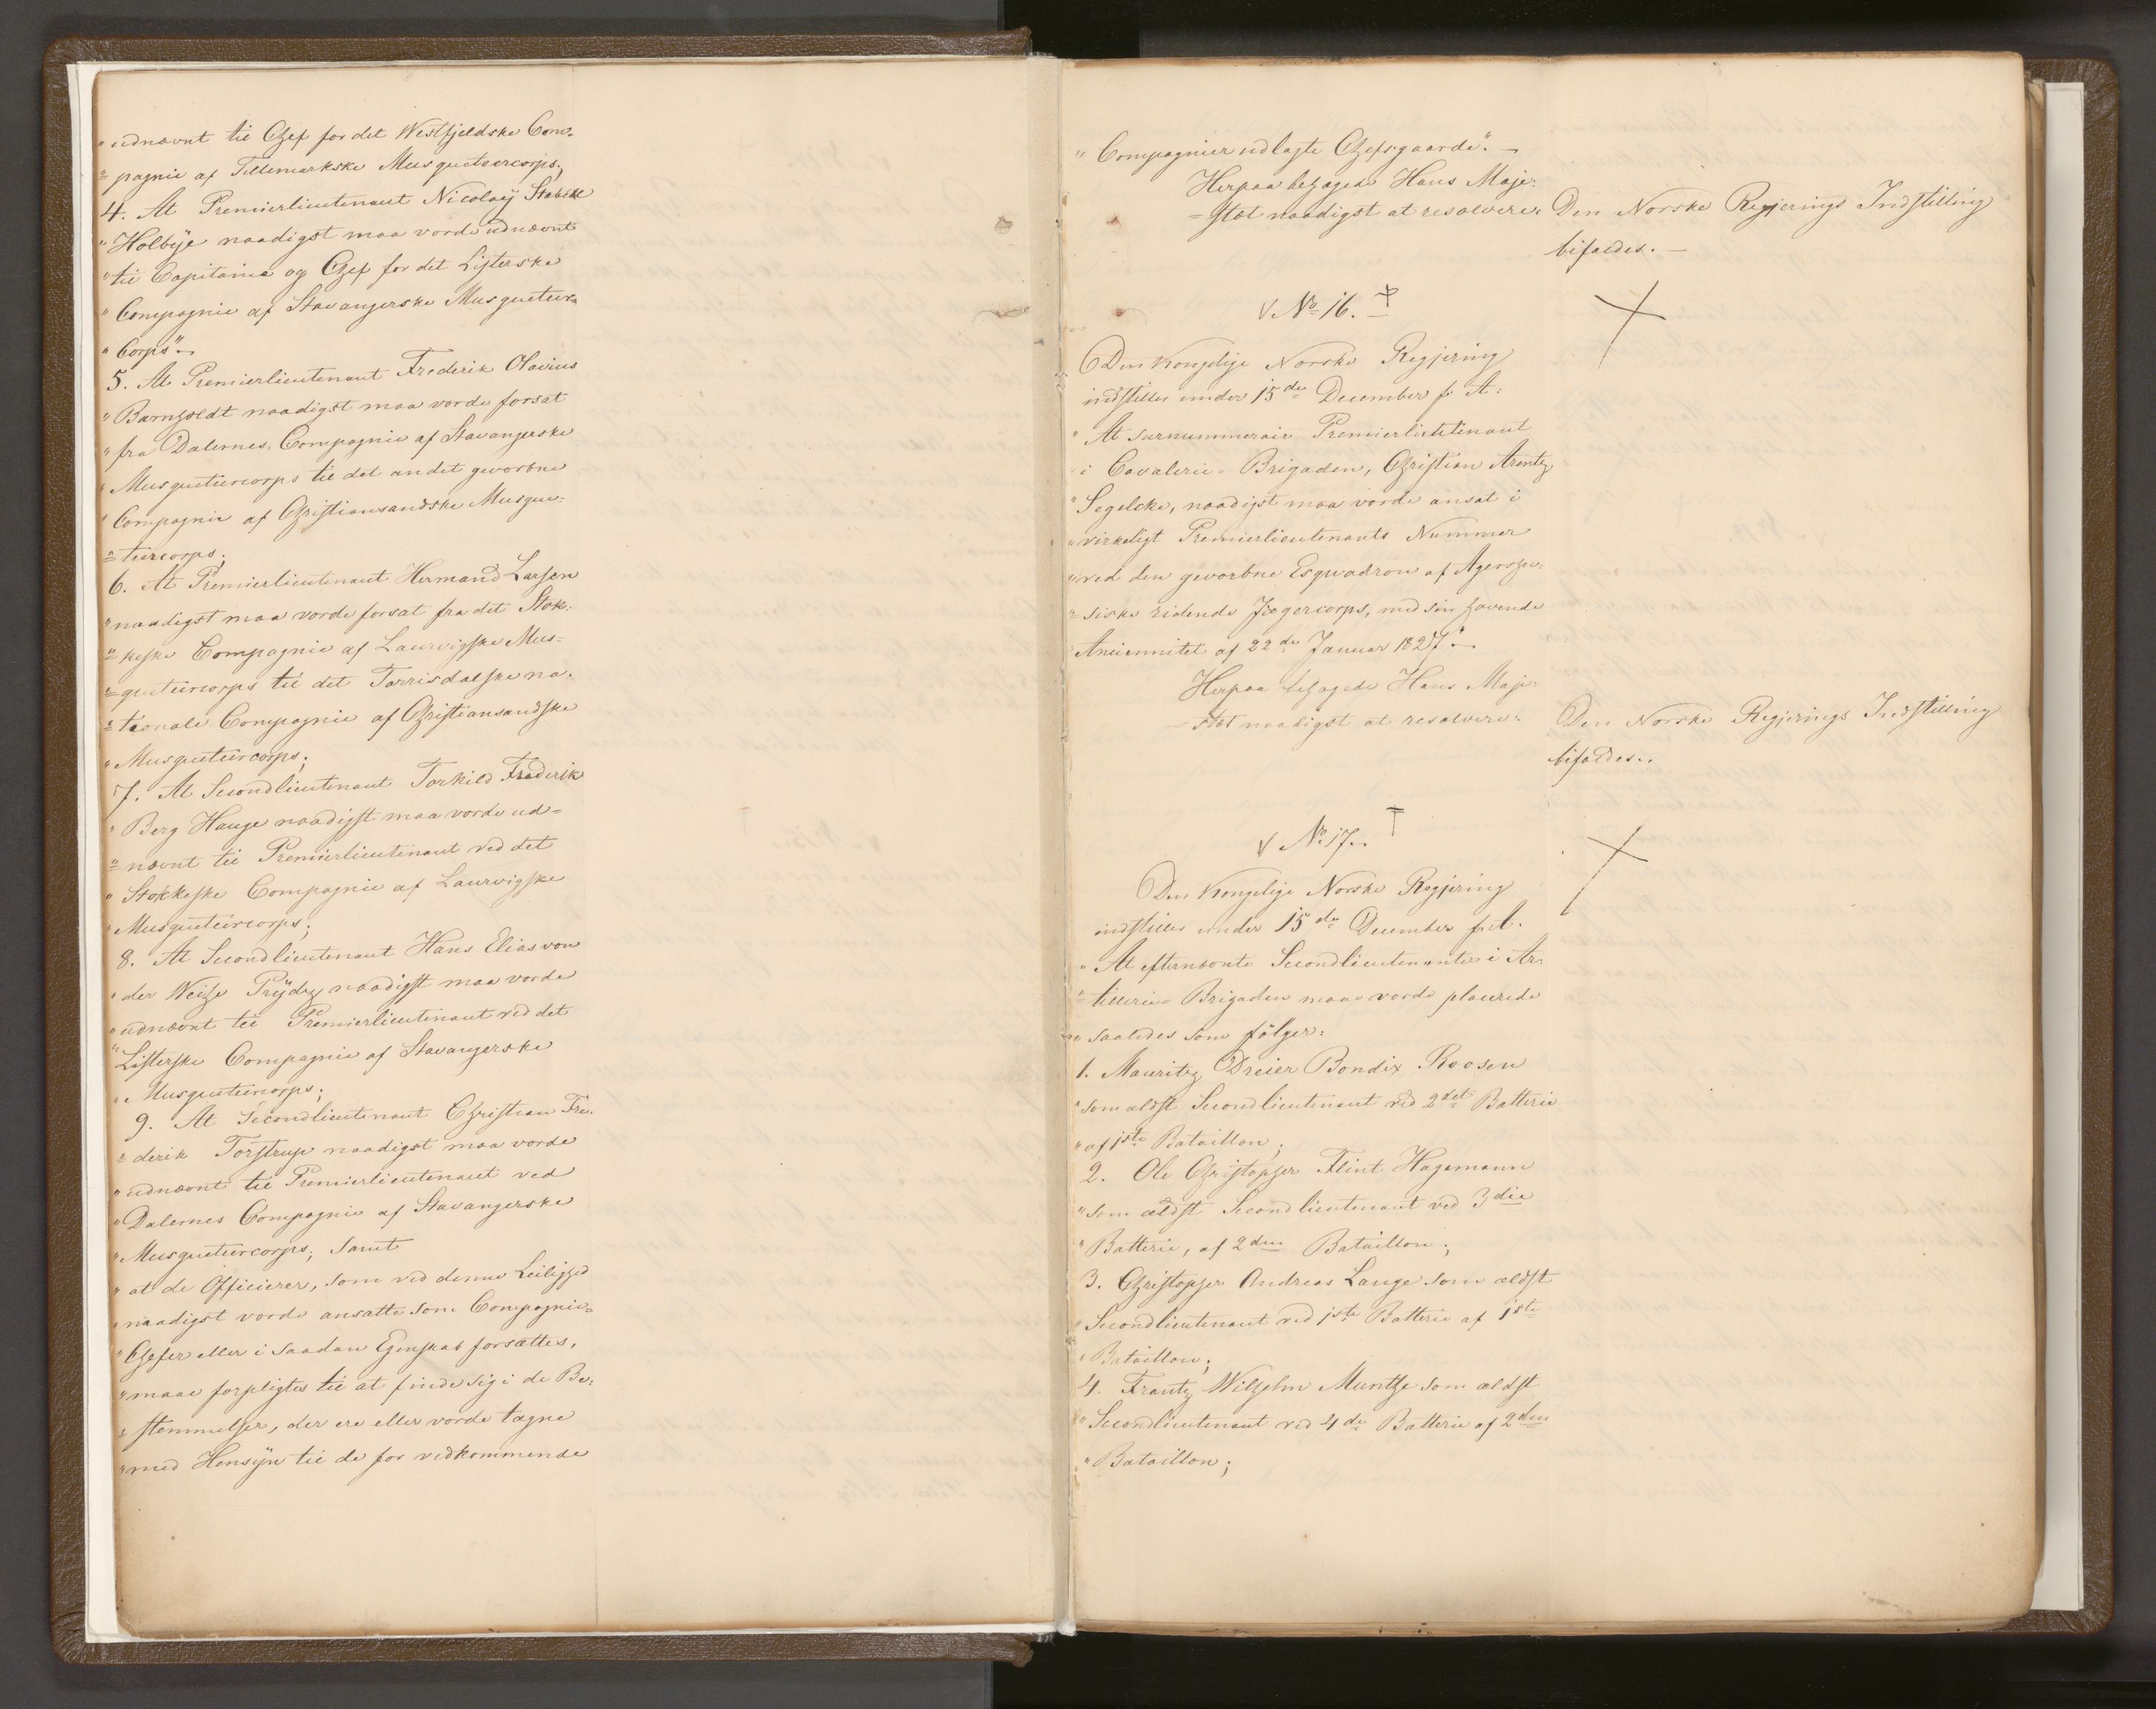 "udnævnt til Chef for det Westfjeldske Com-
"pagnie af Tellemarkske Musqueteercorps;
4. At Premierlieutenant Nicolaÿ Stabell
"Holbÿe naadigst maa vorde udnævnt
"til Capitaine og Chef for det Listerske
"Compagnie af Stavangerske Musqueteer-
"Corps"-
5. At Premierlieutenant Frederik Olavius
"Barnholdt naadigst maa vorde forsat
"fra Dalernes Compagnie af Stavangerske
"Musqueteercorps til det andet gevorbne
"Compagnie af Christiansandske Musque-
"teercorps;
6. At Premierlieutenant Hermand Larsen
"naadigst maa vorde forsat fra det Stok-
"keske Compagnie af Laurvigske Mus-
"queteercorps til det Torrisdalske na-
"tionale Compagnie af Christiansandske
"Musqueteercorps;
7. At Secondlieutenant Torkild Frederik
"Berg Hauge naadigst maa vorde ud-
"nævnt til Premierlieutenant ved det
"Stokkeske Compagnie af Laurvigske
"Musqueteercorps;
8. At Secondlieutenant Hans Elias von
"der Weihe Prÿdz naadigst maa vorde
"udnævnt til Premierlieutenant ved det
"Listerske Compagnie af Stavangerske
"Musqueteercorps;
9. At Secondlieutenant Christian Fre-
"derik Torstrup naadigst maa vorde
"udnævnt til Premierlieutenant ved
"Dalernes Compagnie af Stavangerske
"Musqueteercorps; samt
"at de Officierer, som ved denne Leilighed
"naadigst vorde ansatte som Compagnie-
"Chefer eller i saadan Egenskab forsættes,
"maae forpligtes til at finde sig i de Be-
"stemmelser, der ere eller vorde tagne
"med Hensÿn til de for vedkommende
"Compagnier udlagte Chefsgaarde".-
Herpaa behagede Hans Maje-
-stæt naadigst at resolvere: Den Norske Regjerings Indstilling
bifaldes.-
No 16.
Den Kongelige Norske Regjering
indstiller under 15de December f. A:
"At surnummerair Premierlieutenant
i Cavalerie-Brigaden, Christian Arentz
"Segelcke, naadigst maa vorde ansat i
"virkeligt Premierlieutenants Nummer
"ved den gevorbne Esquadron af Agershu-
"siske ridende Jægercorps, med sin havende
"Anciennitet af 22de Januar 1827".-
Herpaa behagede Hans Maje-
stæt naadigst at resolvere: Den Norske Regjerings Indstilling
bifaldes.
No 17.
Den Kongelige Norske Regjering
indstiller under 15de December f. A.
"At efternævnte Secondlieutenanter i Ar-
"tillerie-Brigaden maae vorde placerede
"saaledes som følger:
1. Mauritz Dreier Bendix Roosen
"som ældst Secondlieutenant ved 2det Batterie
"af 1ste Bataillon;
2. Ole Christopher Flint Hagemann
"som ældst Secondlieutenant ved 3die
"Batterie, af 2den Bataillon;
3. Christopher Andreas Lange som ældst
"Secondlieutenant ved 1ste Batterie af 1ste
"Bataillon;
4. Frantz Wilhelm Munthe som ældst
"Secondlieutenant ved 4de Batterie af 2den
"Bataillon;